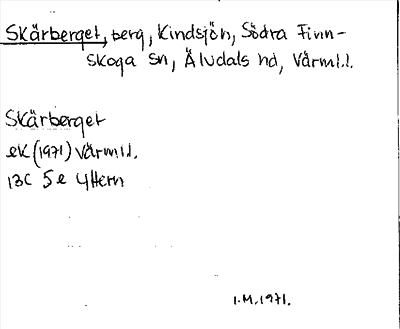 Skärberget, berg, Kindsjön, Södra Finn-
skoga sn, Älvdals hd, Värml.
Skärberget
ek (1971) Värml.
13C 5e Yttern
I.M. 1971.